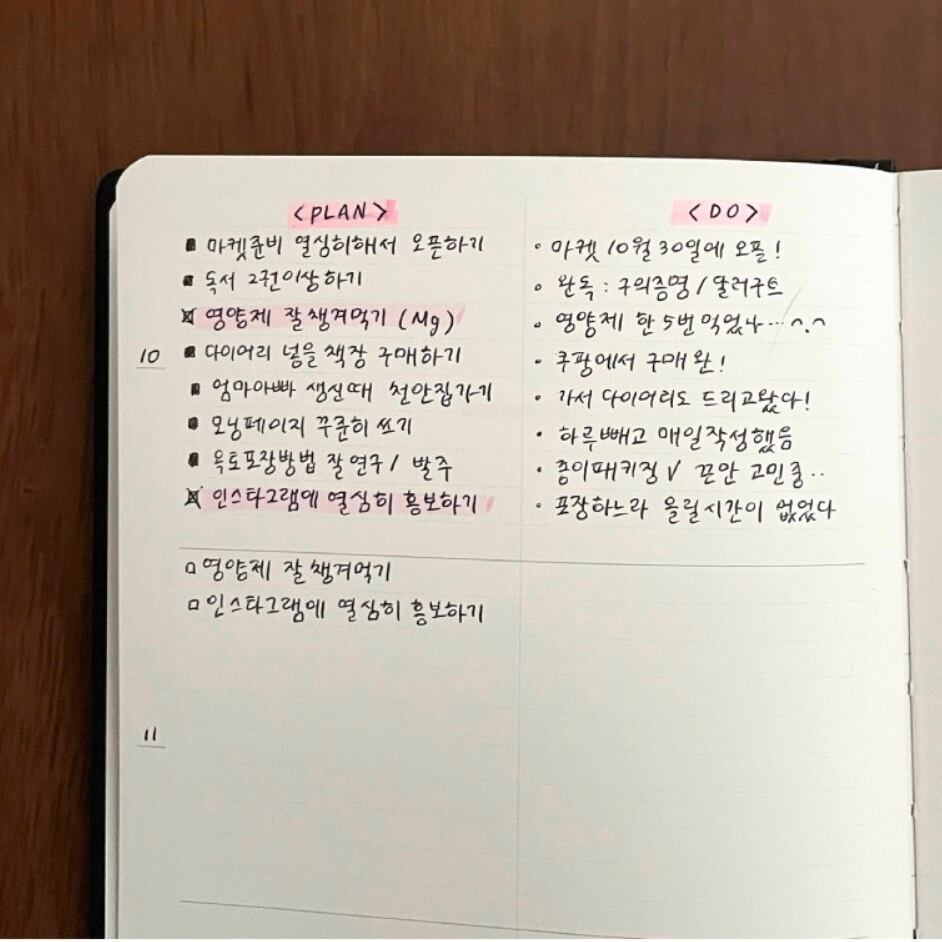 <PLAN>
<DO>
마켓준비 열심히해서 오픈하기
• 마켓 10월 30일에 오픈!
독서 2권이상하기
• 완독 : 구의증명 / 달러구트
영양제 잘챙겨먹기 (Mg)
• 영양제 한 5번 먹었나…^.^
10
다이어리 넣을 책장 구매하기
• 쿠팡에서 구매 완!
엄마아빠 생신때 천안집가기
• 가서 다이어리도 드리고왔다!
모닝페이지 꾸준히 쓰기
• 하루빼고 매일작성했음
육토포장방법 잘연구 / 발주
• 종이패키징 V 끈안 고민중..
인스타그램에 열심히 홍보하기
• 포장하느라 올릴시간이 없었다
□ 영양제 잘챙겨먹기
□ 인스타그램에 열심히 홍보하기
11